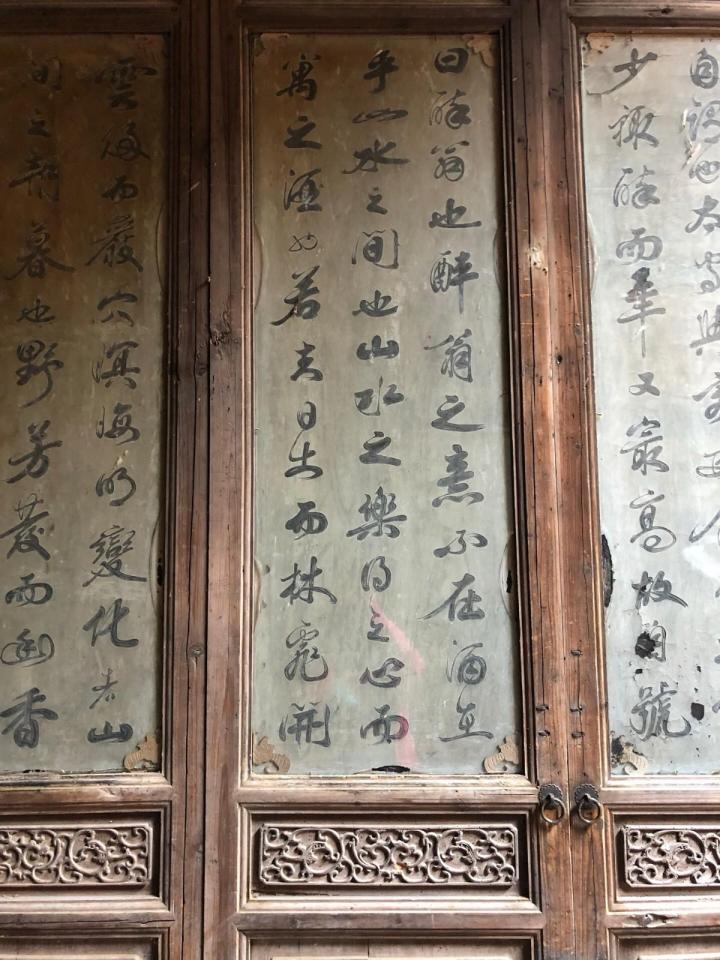 自謂也太守與客
少輒醉而年又最高故自號
曰醉翁也醉翁之意不在酒在
乎山水之間也山水之樂得之心而
寓之酒也若夫日出而林霏開
雲歸而巖穴暝晦明變化者山
間之朝暮也野芳發而幽香